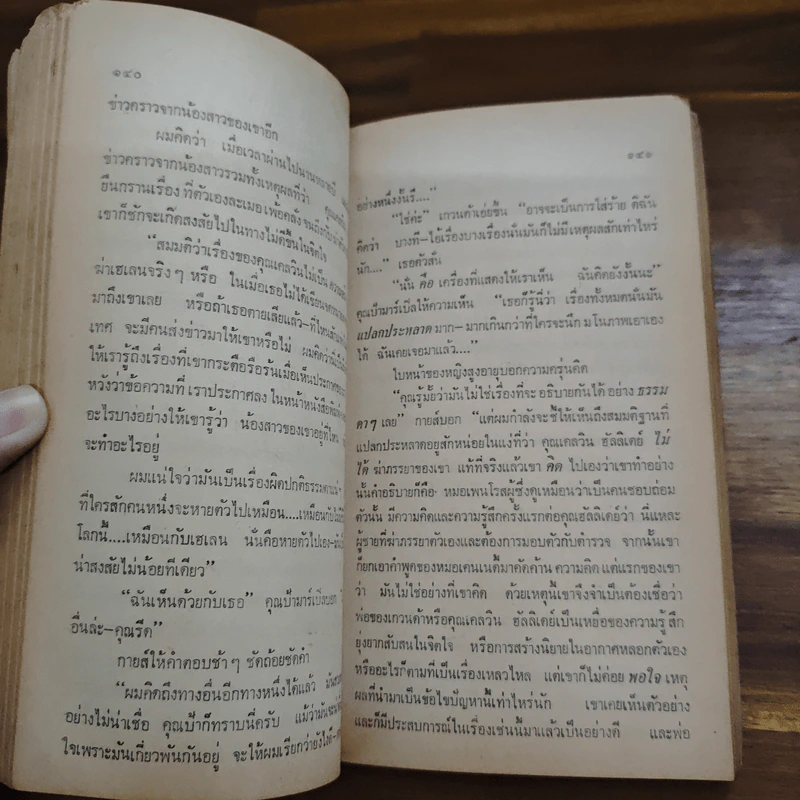 ๑๔๐
ข่าวคราวจากน้องสาวของเขาอีก
ผมคิดว่า เมื่อเวลาผ่านไปนานหลายปี
ข่าวคราวจากน้องสาวรวมทั้งเหตุผลที่ว่า คุณเคล
ยืนกรานเรื่อง ที่ตัวเองละเมอ เพ้อคลั่ง จนถึงกับ
เขาก็ชักจะเกิดสงสัยไปในทางไม่ดีขึ้นในจิตใจ
“สมมติว่าเรื่องของคุณเคลวินไม่เป็น ความ
ฆ่าเฮเลนจริง ๆ หรือ ในเมื่อเธอไม่ได้เขียนจดหมาย
มาถึงเขาเลย หรือถ้าเธอตายเสียแล้ว-ที่ไหนสัก
เทศ จะมีคนส่งข่าวมาให้เขาหรือไม่ ผมคิดว่า
ให้เรารู้ถึงเรื่องที่เขากระตือรือร้นเมื่อเห็นประกาศ
หวังว่าข้อความที่ เราประกาศลง ในหน้าหนังสือพิมพ์
อะไรบางอย่างให้เขารู้ว่า น้องสาวของเขาอยู่ที่ไหน
จะทำอะไรอยู่
ผมแน่ใจว่ามันเป็นเรื่องผิดปกติธรรมดาแน่ ๆ
ที่ใครสักคนหนึ่งจะหายตัวไปเหมือน....เหมือนกับไม่มี
โลกนี้....เหมือนกับเฮเลน นั่นคือหายตัวไปเอง-มัน
น่าสงสัยไม่น้อยทีเดียว”
“ฉันเห็นด้วยกับเธอ” คุณป้ามาร์เปิ้ลบอก
อื่นล่ะ-คุณรีด”
กายส์ให้คำตอบช้า ๆ ชัดถ้อยชัดคำ
“ผมคิดถึงทางอื่นอีกทางหนึ่งได้แล้ว มัน
อย่างไม่น่าเชื่อ คุณป้าก็ทราบนี่ครับ แม้ว่ามันจะ
ใจเพราะมันเกี่ยวพันกันอยู่ จะให้ผมเรียกว่ายังไงดี-
๑๔๑
อย่างหนึ่งงั้นรึ....”
“ใช่ค่ะ” เกวนด้าเอ่ยขึ้น “อาจจะเป็นการใส่ร้าย ดิฉัน
คิดว่า บางที-ไอ้เรื่องบางเรื่องนั่นมันก็ไม่มีเหตุผลสักเท่าไหร่
นัก....” เธอตัวสั่น
“นั่น คือ เครื่องที่แสดงให้เราเห็น ฉันคิดยังงั้นนะ”
คุณป้ามาร์เปิ้ลให้ความเห็น “เธอก็รู้นี่ว่า เรื่องทั้งหมดนั่นมัน
แปลกประหลาด มาก- มากเกินกว่าที่ใครจะนึก มโนภาพเอาเอง
ได้ ฉันเคยเจอมาแล้ว....”
ใบหน้าของหญิงสูงอายุบอกความครุ่นคิด
“คุณรู้มั้ยว่ามันไม่ใช่เรื่องที่จะ อธิบายกันได้ อย่าง ธรรม
ดา ๆ เลย” กายส์บอก “แต่ผมกำลังจะชี้ให้เห็นถึงสมมติฐานที่
แปลกประหลาดอยู่สักหน่อยในแง่ที่ว่า คุณเคลวิน ฮัลลิเดย์ ไม่
ได้ ฆ่าภรรยาของเขา แท้ที่จริงแล้วเขา คิด ไปเองว่าเขาทำอย่าง
นั้นคำอธิบายก็คือ หมอเพนโรสผู้ซึ่งดูเหมือนว่าเป็นคนชอบถ่อม
ตัวนั้น มีความคิดและความรู้สึกครั้งแรกต่อคุณฮัลลิเดย์ว่า นี่แหละ
ผู้ชายที่ฆ่าภรรยาตัวเองและต้องการมอบตัวกับตำรวจ จากนั้นเขา
ก็ยกเอาคำพูดของหมอเคนเนดี้มาคัดค้าน ความคิด แต่แรกของเขา
ว่า มันไม่ใช่อย่างที่เขาคิด ด้วยเหตุนี้เขาจึงจำเป็นต้องเชื่อว่า
พ่อของเกวนด้าหรือคุณเคลวิน ฮัลลิเดย์เป็นเหยื่อของความรู้สึก
ยุ่งยากสับสนในจิตใจ หรือการสร้างนิยายในอากาศหลอกตัวเอง
หรืออะไรก็ตามที่เป็นเรื่องเหลวไหล แต่เขาก็ไม่ค่อย พอใจ เหตุ
ผลที่นำมาเป็นข้อไขปัญหานี้เท่าไหร่นัก เขาเคยเห็นตัวอย่าง
และก็มีประสบการณ์ในเรื่องเช่นนี้มาแล้วเป็นอย่างดี และพ่อ